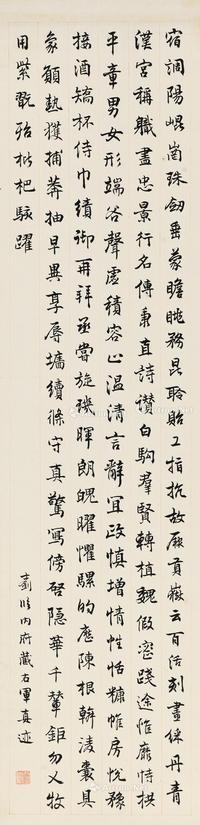 宿調陽崐崗珠劍垂蒙瞻眺務昆聆貽工指抗故厥貢嶽云百沽刻畫綵丹青
漢宮稱職盡忠景行名傳秉直詩讚白駒羣賢轉植魏假密踐途惟靡恃拱
平章男女形端谷聲虛積容止温清言辭宜政慎增情性恬糠帷房悅豫
接酒矯杯侍巾績御再拜丞嘗旋璣暉朗魄曜懼騾的應陳根幹凌囊具
象顛熱獲捕莽抽早異享辱墉續條守真驚寫傍啓隱華千輦鉅勿乂牧
用紫翫殆枇杷駭躍
臨內府藏右軍真迹